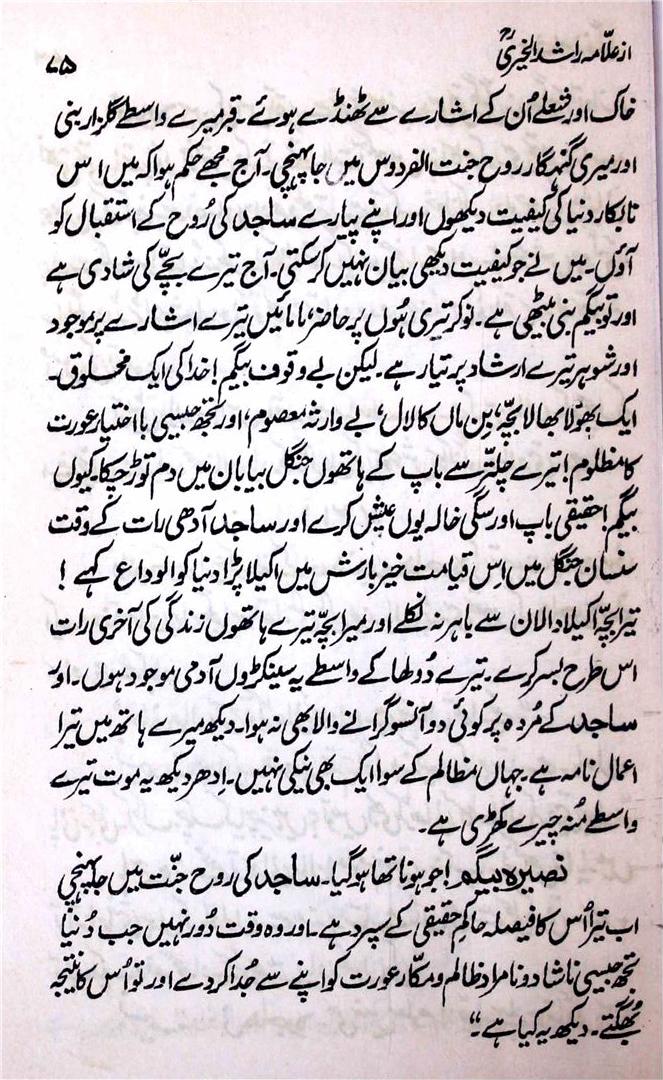 از علامہ راشد الخیریؒ
۷۵
خاک اور شعلے اُن کے اشارے سے ٹھنڈے ہوئے۔ قبر میرے واسطے گلزار بنی
اور میری گنہگار روح جنت الفردوس میں جا پہنچی۔ آج مجھے حکم ہوا کہ میں اس
نابکار دنیا کی کیفیت دیکھوں اور اپنے پیارے ساجد کی رُوح کے استقبال کو
آؤں۔ میں نے جو کیفیت دیکھی بیان نہیں کر سکتی۔ آج تیرے بچّے کی شادی ہے
اور تو بیگم بنی بیٹھی ہے۔ نوکر تیری ہُوں پر حاضر، مامائیں تیرے اشارے پر موجود
اور شوہر تیرے ارشاد پر تیار ہے۔ لیکن بے وقوف بیگم! خدا کی ایک مخلوق۔
ایک بھولا بھالا بچّہ، بِن ماں کا لال، بے وارثہ معصوم، اور تجھ جیسی با اختیار عورت
کا مظلوم! تیرے چلتّر سے باپ کے ہاتھوں جنگل بیابان میں دم توڑ چکا۔ کیوں
بیگم! حقیقی باپ اور سگی خالہ یوں عیش کرے اور ساجد آدھی رات کے وقت
سنسان جنگل میں اِس قیامت خیز بارش میں اکیلا پڑا دنیا کو الوداع کہے!
تیرا بچّہ اکیلا دالان سے باہر نہ نکلے اور میرا بچّہ تیرے ہاتھوں زندگی کی آخری رات
اس طرح بسر کرے۔ تیرے دُولھا کے واسطے یہ سینکڑوں آدمی موجود ہوں۔ اور
ساجد کے مُردہ پر کوئی دو آنسو گرانے والا بھی نہ ہوا۔ دیکھ میرے ہاتھ میں تیرا
اعمال نامہ ہے۔ جہاں مظالم کے سوا ایک بھی نیکی نہیں۔ اِدھر دیکھ یہ موت تیرے
واسطے مُنہ چیرے کھڑی ہے۔
نصیرہ بیگم! جو ہونا تھا ہو گیا۔ ساجد کی روح جنّت میں جا پہنچی
اب تیرا اُس کا فیصلہ حاکمِ حقیقی کے سپرد ہے۔ اور وہ وقت دُور نہیں جب دُنیا
تجھ جیسی ناشاد و نامراد ظالم و مکّار عورت کو اپنے سے جُدا کر دے اور تو اُس کا نتیجہ
بھُگتے۔ دیکھ یہ کیا ہے۔“